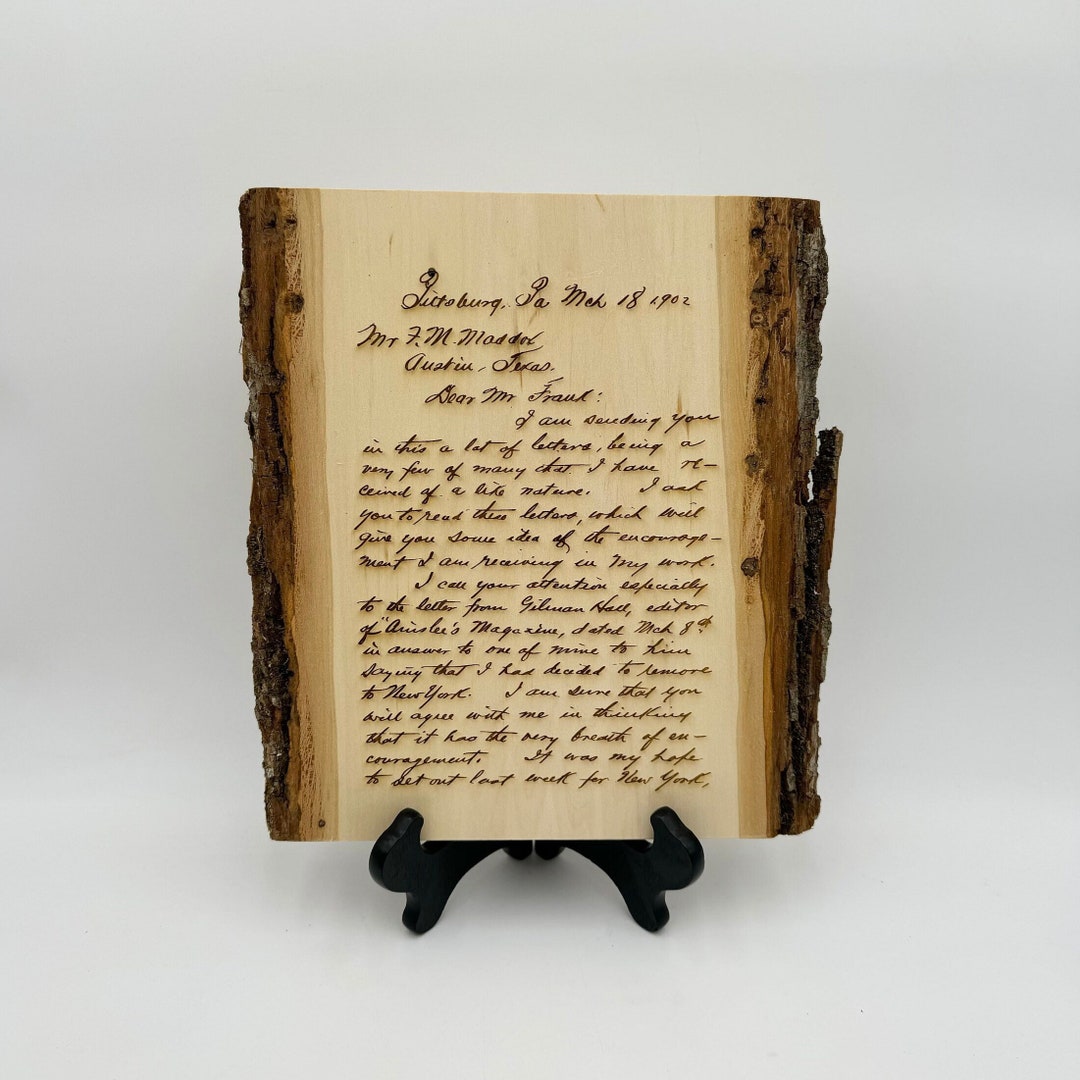 Pittsburg, Pa Mch 18 1902
Mr F. M. Maddox
Austin, Texas.
Dear Mr Frank:
I am sending you
in this a lot of letters, being a
very few of many that I have re-
ceived of a like nature. I ask
you to read these letters, which will
give you some idea of the encourage-
ment I am receiving in my work.
I call your attention especially
to the letter from Gilman Hall, editor
of "Ainslee's Magazine, dated Mch 8th
in answer to one of mine to him
saying that I had decided to remove
to New York. I am sure that you
will agree with me in thinking
that it has the very breath of en-
couragement. It was my hope
to set out last week for New York,